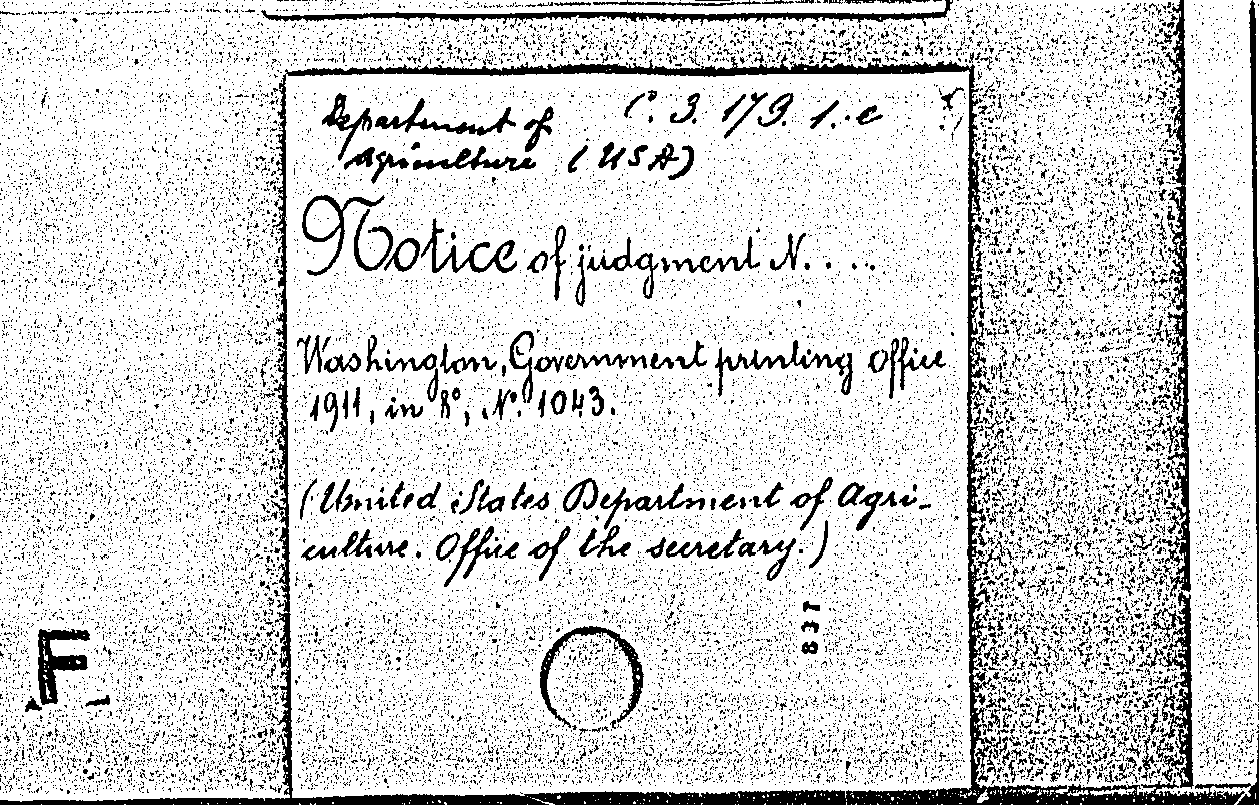 Department of C. 3. 179. 1. c
Agriculture (USA)
Notice of judgment N. . . .
Washington, Government printing office
1911, in 8°, N° 1043.
(United States Department of Agri-
culture. Office of the secretary.)
837
F